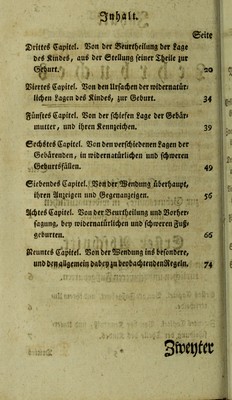 Inhalt.
Seite
Drittes Capitel. Von der Beurtheilung der Lage
des Kindes, aus der Stellung seiner Theile zur
Geburt. 20
Viertes Capitel. Von den Ursachen der widernatür-
lichen Lagen des Kindes, zur Geburt. 34
Fünftes Capitel. Von der schiefen Lage der Gebär-
mutter, und ihren Kennzeichen. 39
Sechstes Capitel. Von den verschiedenen Lagen der
Gebärenden, in widernatürlichen und schweren
Geburtsfällen. 49
Siebendes Capitel. Von der Wendung überhaupt,
ihren Anzeigen und Gegenanzeigen. 56
Achtes Capitel. Von der Beurtheilung und Vorher-
sagung, bey widernatürlichen und schweren Fuß-
geburten. 66
Neuntes Capitel. Von der Wendung ins besondre,
und den allgemein dabey zu beobachtenden Regeln. 74
Zweyter